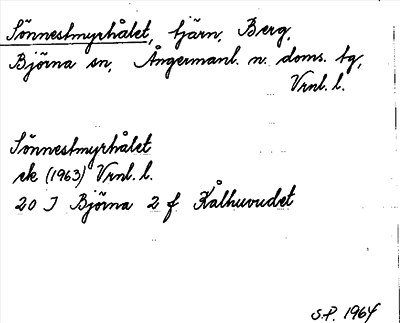 Sönnestmyrhålet, tjärn, Berg,
Björna sn, Ångermanl. n. doms. tg,
Vrnl. l.
Sönnestmyrhålet
ek (1963) Vrnl. l.
20 J Björna 2 f Kålhuvudet
S.P. 1964